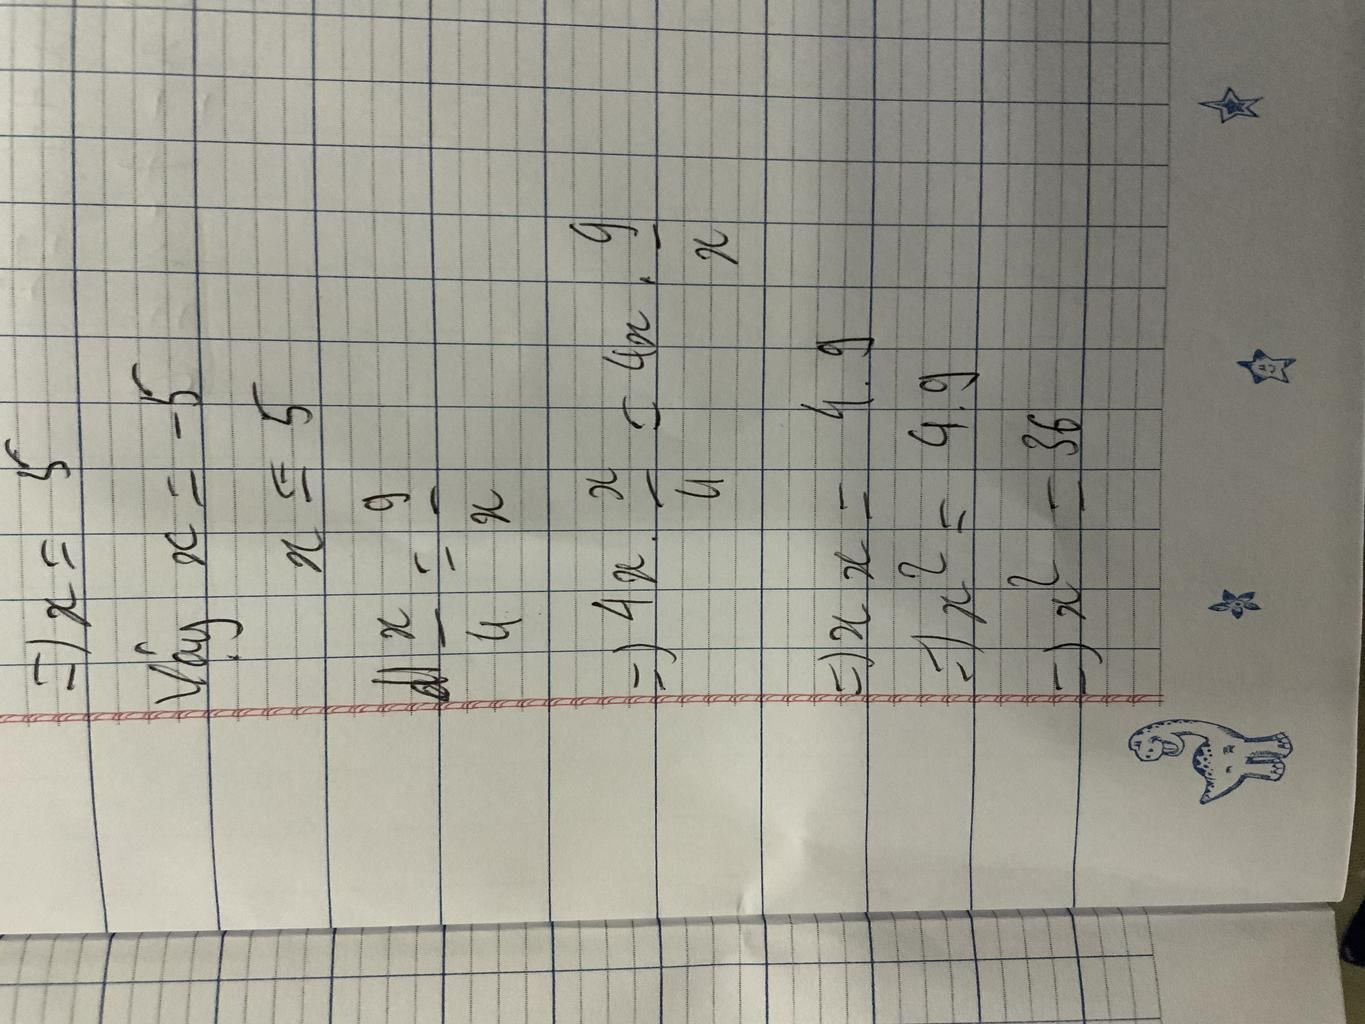 =) x = 5
Vậy x = -5
x = 5
d) x/4 = 9/x
=) 4x . x/4 = 4x . 9/x
=) x x = 4.9
=) x² = 4.9
=) x² = 36